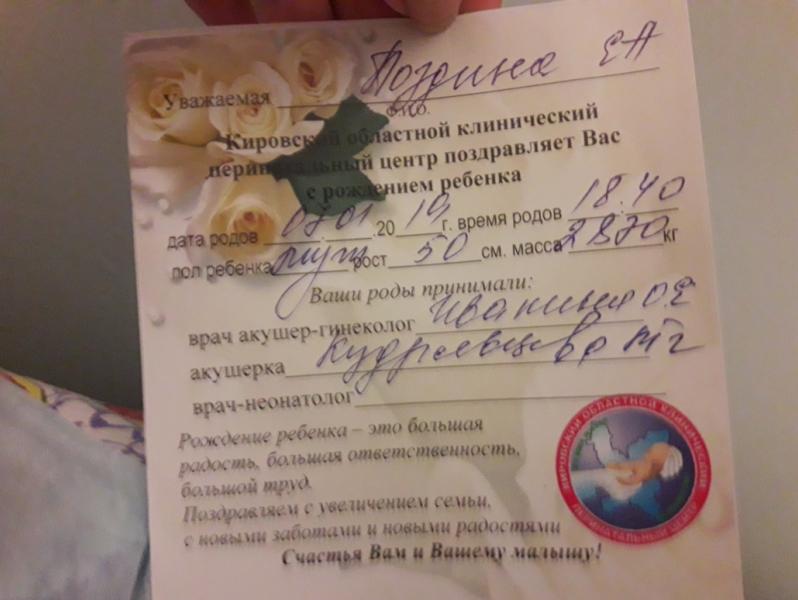 Уважаемая Поздина ЕА
Ф.И.О.
Кировский областной клинический
перинатальный центр поздравляет Вас
с рождением ребенка
дата родов 07.01.2019 г. время родов 18.40
пол ребенка муж рост 50 см. масса 2870 кг
Ваши роды принимали:
врач акушер-гинеколог Иванина ОЕ
акушерка Кудрявцева
врач-неонатолог
Рождение ребенка – это большая
радость, большая ответственность,
большой труд.
Поздравляем с увеличением семьи,
с новыми заботами и новыми радостями
Счастья Вам и Вашему малышу!
КИРОВСКИЙ ОБЛАСТНОЙ КЛИНИЧЕСКИЙ
ПЕРИНАТАЛЬНЫЙ ЦЕНТР